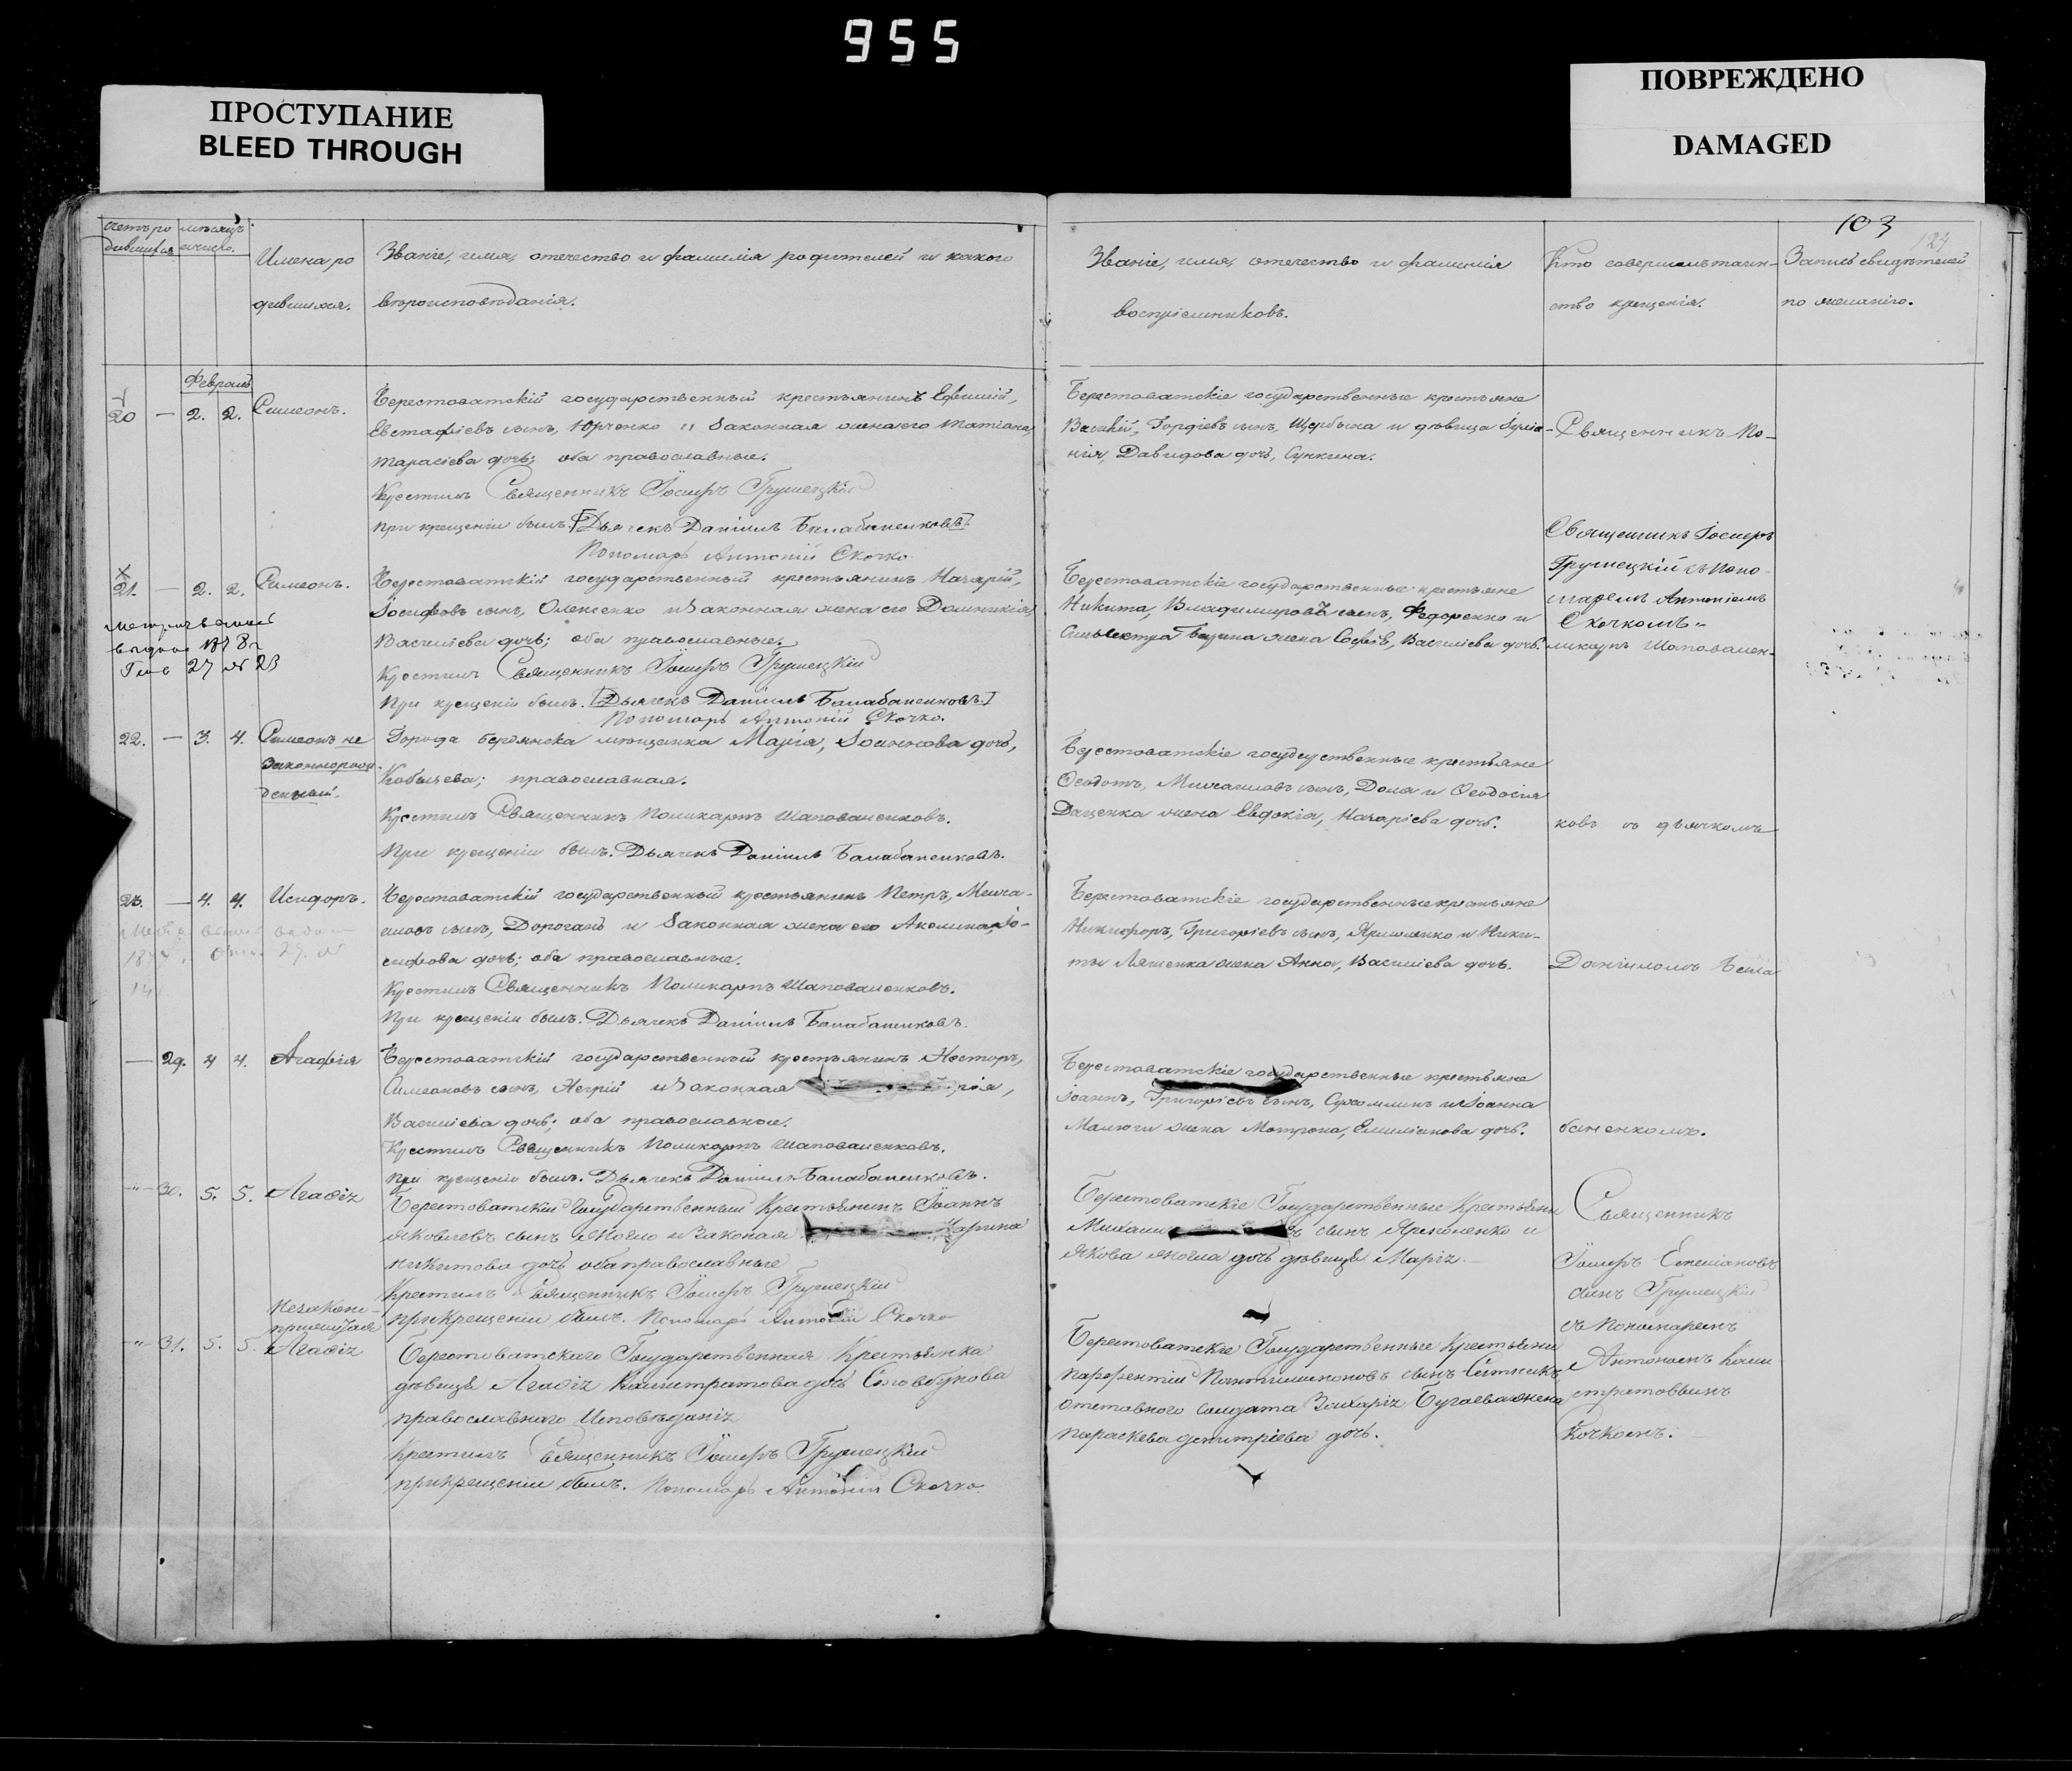 955
ПРОСТУПАНИЕ
BLEED THROUGH
ПОВРЕЖДЕНО
DAMAGED
103
124
Счетъ ро мѣсяцъ
дившихся и число.
Имена ро
дившихся.
Званіе, имя, отечество и фамилія родителей и какого
вѣроисповѣданія.
Званіе, имя, отечество и фамилія
воспріемниковъ.
Кто совершилъ таин-
ство крещенія.
Запись свидѣтелей
по желанію.
Февраль
20 — 2. 2. Симеонъ.
Берестоватскій государственный крестьянинъ Евѳимій,
Евстафіевъ сынъ, Юрченко и законная жена его Татіана,
Тарасіева дочь; оба православные.
Крестилъ Священникъ Іосифъ Грушецкій
При крещеніи былъ. Дьячекъ Даніилъ Балабаненковъ
Пономарь Антоній Скочко
Берестоватскіе государственные крестьяне
Василій, Гордіевъ сынъ, Щербына и дѣвица
Давидова дочь,
Священникъ По-
21. — 2. 2. Симеонъ.
выдано 1878 г
27 № 23
Берестоватскій государственный крестьянинъ Назарій,
Іосифовъ сынъ, Олексенко и законная жена его Домникія,
Василіева дочь; оба православные.
Крестилъ Священникъ Іосифъ Грушецкій
При крещеніи былъ. Дьячекъ Даніилъ Балабаненковъ.
Пономарь Антоній Скочко.
Берестоватскіе государственные крестьяне
Никита, Владимировъ сынъ, Федоренко и
жена Софія, Василіева дочь.
Священникъ Іосифъ
Грушецкій съ Поно-
маремъ Антоніемъ
Скочкомъ
ликарпъ Шаповален-
22. — 3. 4. Симеонъ не
законнорож-
денный.
Города Бердянска мѣщанка Марія, Іоаннова дочь,
Кобызева; православная.
Крестилъ Священникъ Поликарпъ Шаповаленковъ.
При крещеніи былъ. Дьячекъ Даніилъ Балабаненковъ.
Берестоватскіе государственные крестьяне
Ѳеодотъ, Михаиловъ сынъ, и Ѳеодосія
Даценка жена Евдокія, Назаріева дочь.
ковъ съ дьячкомъ
23. — 4. 4. Исидоръ.
Берестоватскій государственный крестьянинъ Петръ, Миха-
иловъ сынъ, Дороганъ и законная жена его Акилина, Іо-
сифова дочь; оба православные.
Крестилъ Священникъ Поликарпъ Шаповаленковъ.
При крещеніи былъ. Дьячекъ Даніилъ Балабаненковъ.
Берестоватскіе государственные крестьяне
Никифоръ, Григоріевъ сынъ, и Ники-
ты Ляшенка жена Анна, Василіева дочь.
Даніиломъ Бала
— 29. 4 4. Агафія
Берестоватскій государственный крестьянинъ Несторъ,
Симеоновъ сынъ, и законная
Василіева дочь; оба православные.
Крестилъ Священникъ Поликарпъ Шаповаленковъ.
При крещеніи былъ. Дьячекъ Даніилъ Балабаненковъ.
Берестоватскіе государственные крестьяне
Іоаннъ, Григоріевъ сынъ, и Іоанна
Малюги жена Матрона, Емиліанова дочь.
баненкомъ.
— 30. 5. 5. Агафія
Берестоватскій Государственный Крестьянинъ Іоаннъ
Яковлевъ сынъ и Законая
Никитова дочь оба православные
Крестилъ Священникъ Іосифъ Грушецкій
При Крещеніи былъ. Пономарь Антоній Скочко
Берестоватскіе Государственные Крестьяни
сынъ и
Якова дочь дѣвица Марія.
Священникъ
Іосифъ
сынъ Грушецкій
съ Пономаремъ
— 31. 5. 5. Агафія
Берестоватскаго Государственная Крестьянка
дѣвица Агафія Калистратова дочь
православнаго Исповѣданія
Крестилъ Священникъ Іосифъ Грушецкій
при Крещеніи былъ. Пономарь Антоній Скочко.
Берестоватскіе Государственные Крестьяни
Парфентій Пантилимоновъ сынъ
отставного солдата Захарія Бугаева жена
Параскева Димитріева дочь.